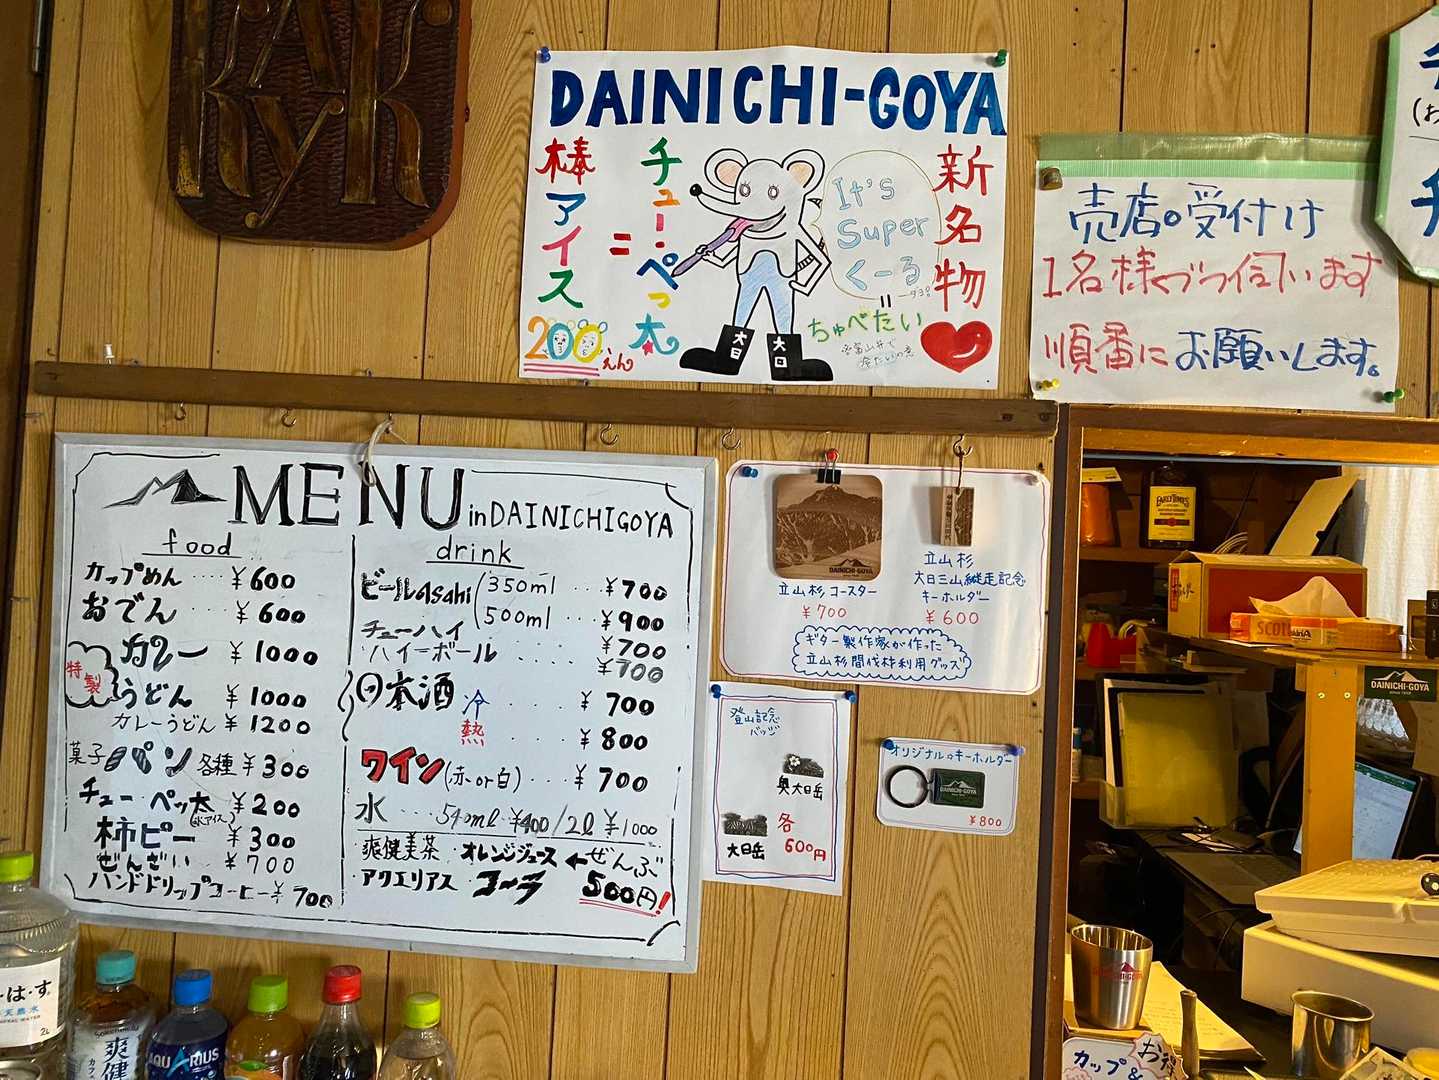 DAINICHI-GOYA
棒アイス
=
チュー・ペっ太
新名物
It's
Super
くーる
ちゅべたい
200えん
大日
大日
売店の受付け
1名様づつ伺います
順番にお願いします。
MENU in DAINICHIGOYA
food
カップめん ‥‥ ¥600
おでん ¥600
特製
カレー ¥1000
うどん ¥1000
カレーうどん ¥1200
菓子パン 各種 ¥300
チューペッ太 (氷アイス) ¥200
柿ピー ¥300
ぜんざい ¥700
ハンドドリップコーヒー ¥700
drink
ビール Asahi 350ml ‥‥ ¥700
500ml ‥‥ ¥900
チューハイ ¥700
ハイボール ‥‥ ¥700
日本酒 冷 ‥‥ ¥700
熱 ‥‥ ¥800
ワイン (赤 or 白) ‥‥ ¥700
水 ‥‥ 540ml ¥400 / 2l ¥1000
・爽健美茶 ・オレンジジュース ←ぜんぶ
・アクエリアス ・コーラ 500円!
DAINICHI-GOYA
立山杉コースター
¥700
立山杉
大日三山縦走記念
キーホルダー
¥600
ギター製作家が作った
立山杉間伐材利用グッズ
登山記念
バッジ
奥大日岳
大日岳
各
600円
オリジナルキーホルダー
DAINICHI-GOYA
¥800
EARLY TIMES
SCOTTIE
DAINICHI-GOYA
は・す
天然水
2L
爽健
AQUARIUS
カップ&
お得